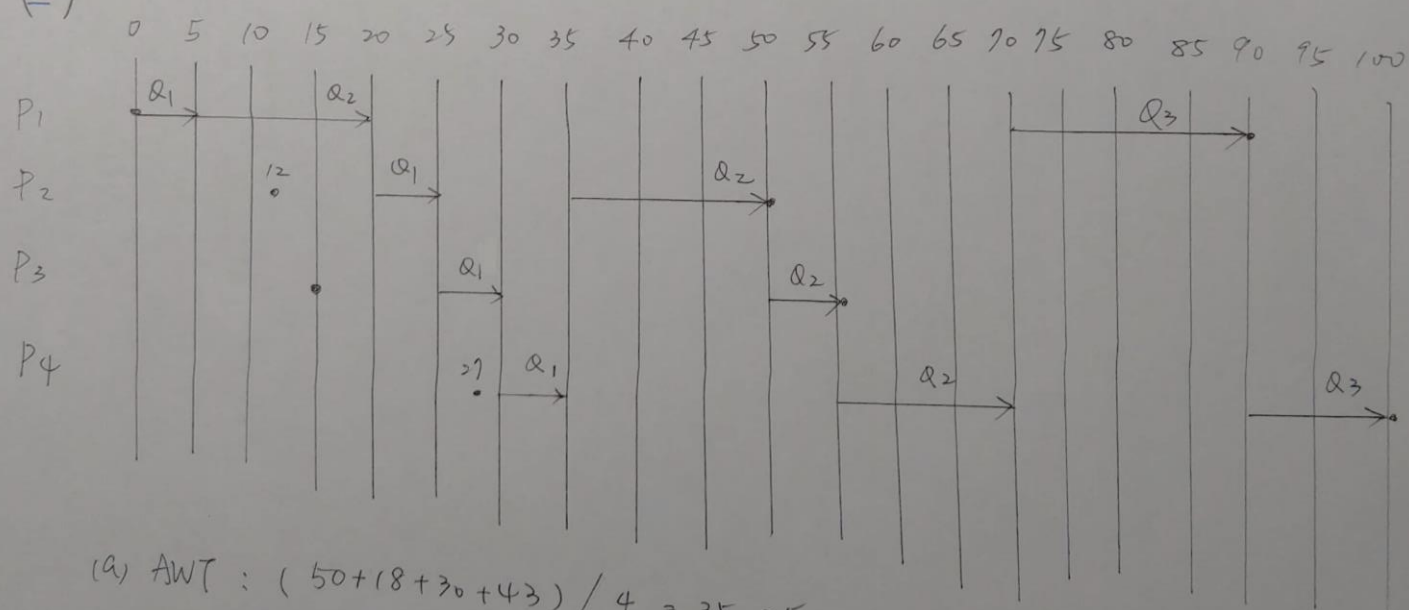 (二)
0 5 10 15 20 25 30 35 40 45 50 55 60 65 70 75 80 85 90 95 100
P1 Q1 Q2 Q3
P2 12 Q1 Q2
P3 Q1 Q2
P4 27 Q1 Q2 Q3
(a) AWT : (50+18+30+43) / 4 = 35